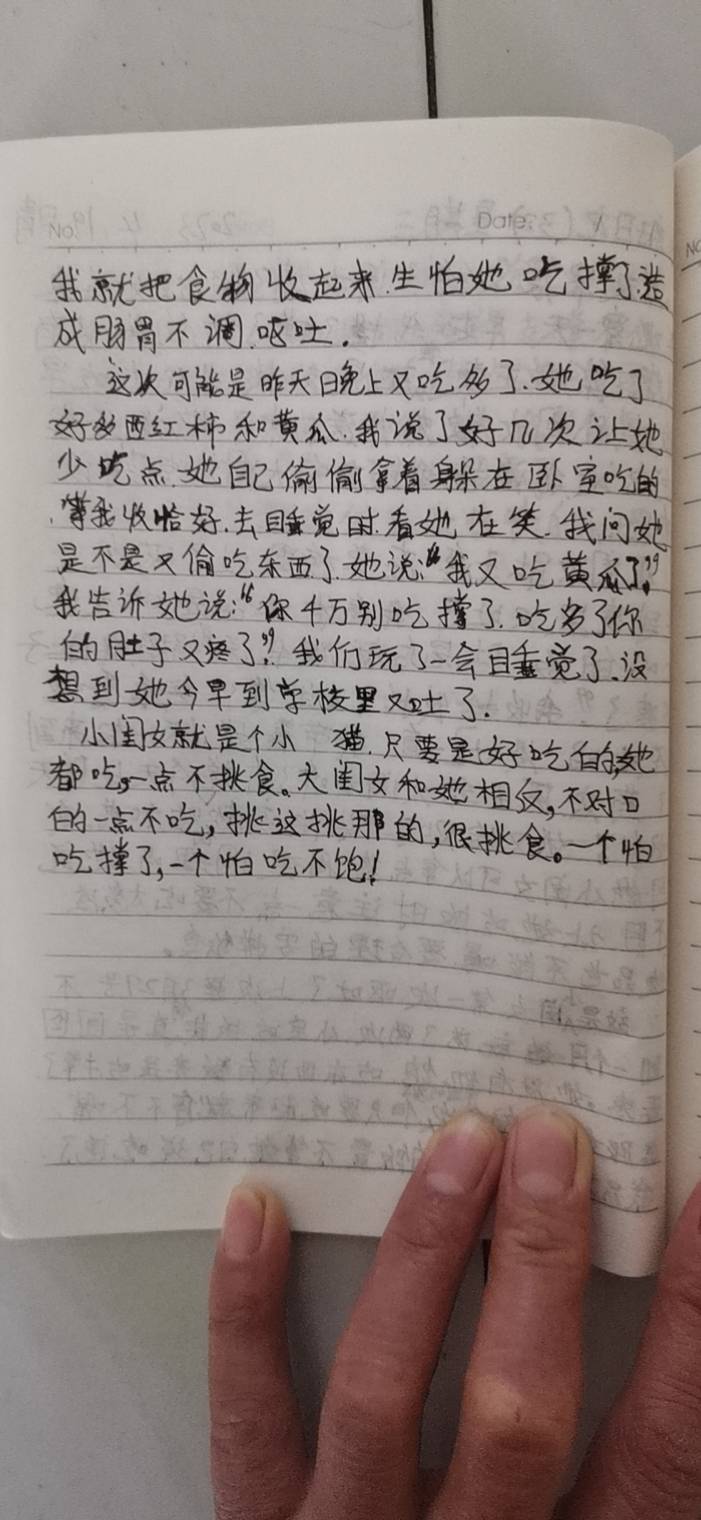 No:
Date:
我就把食物收起来.生怕她吃撑了造
成肠胃不调.呕吐.
这次可能是昨天晚上又吃多了.她吃了
好多西红柿和黄瓜.我说了好几次让她
少吃点.她自己偷偷拿着躲在卧室吃的
.等我收恰好.去睡觉时.看她在笑.我问她
是不是又偷吃东西了.她说:“我又吃黄瓜了”.
我告诉她说:“你千万别吃撑了.吃多了你
的肚子又疼了”?我们玩了一会睡觉了.没
想到她今早到学校里又吐了.
小闺女就是个小 猫.只要是好吃的,她
都吃,一点不挑食。大闺女和她相反,不对口
的一点不吃,挑这挑那的,很挑食。一个怕
吃撑了,一个怕吃不饱!